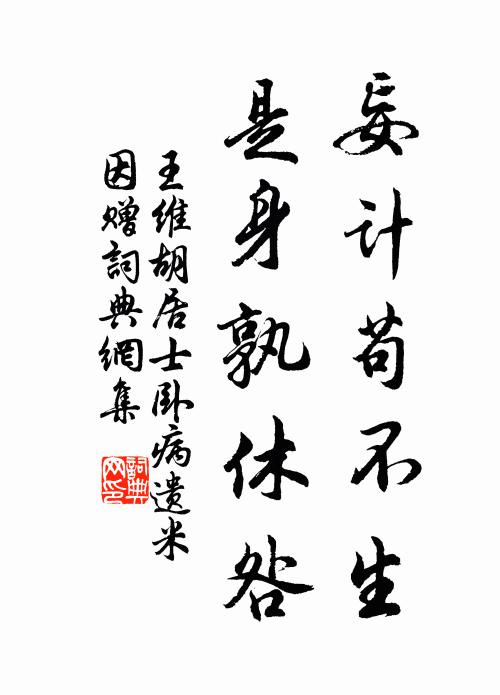 妄计苟不生
是身孰休咎
王维胡居士卧病遗米
因赠词典網集
詞典
网印